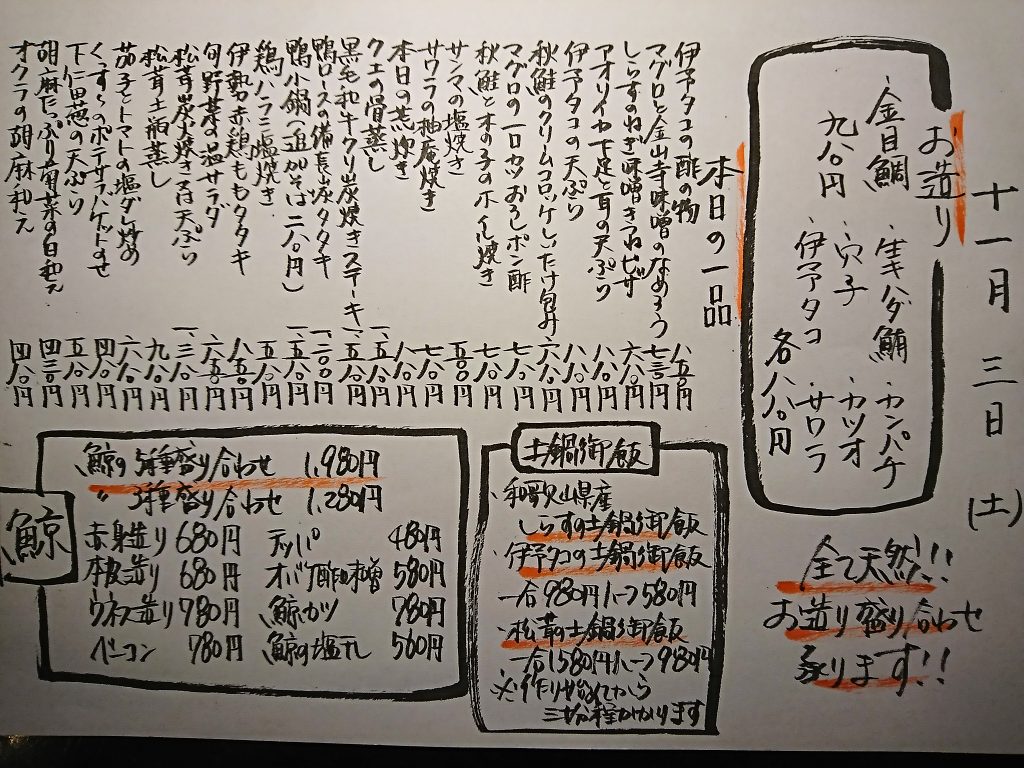 十一月三日(土)
お造り
・金目鯛 ・生キハダ鮪 ・カンパチ
九八〇円 ・穴子 ・カツオ
・伊予タコ ・サワラ
各八八〇円
全て天然!!
お造り盛り合わせ
承ります!!
本日の一品
伊予タコの酢の物 八五〇円
マグロと金山寺味噌のなめろう 七三〇円
しらすのねぎ味噌きつねピザ 六八〇円
アオリイカ下足と耳の天ぷら 八八〇円
伊予タコの天ぷら 八八〇円
秋鮭のクリームコロッケしいたけ包み 六八〇円
マグロの一口カツおろしポン酢 七八〇円
秋鮭ときの子のホイル焼き 七八〇円
サンマの塩焼き 五〇〇円
サワラの柚庵焼き 七八〇円
本日の煮炊き 八八〇円
クエの骨蒸し 一、五八〇円
黒毛和牛クリ炭焼きステーキ 一、五八〇円
鴨ロースの備長炭タタキ 一、二〇〇円
鴨小鍋(追加そば二八〇円) 一、五八〇円
鶏ハラミ塩焼き 五八〇円
伊勢赤鶏ももタタキ 八五〇円
旬野菜の温サラダ 六五〇円
松茸炭火焼き又は天ぷら 一、三八〇円
松茸土瓶蒸し 九八〇円
茄子とトマトの塩ダレ炒め 六八〇円
くんすくのポテサラバケットのせ 四八〇円
下仁田葱の天ぷら 五八〇円
胡麻たっぷり菊菜の白和え 四三〇円
オクラの胡麻和え 四八〇円
土鍋御飯
・和歌山県産
しらすの土鍋御飯
・伊予タコの土鍋御飯
一合980円 ハーフ580円
・松茸の土鍋御飯
一合1,580円 ハーフ980円
※作り始めてから
三十分程かかります
鯨
鯨の5種盛り合わせ 1,980円
〃 3種盛り合わせ 1,280円
赤身造り 680円 テッパ 480円
本皮造り 680円 オバケ酢味噌 580円
ウネス造り 780円 鯨カツ 780円
ベーコン 780円 鯨の塩干し 560円